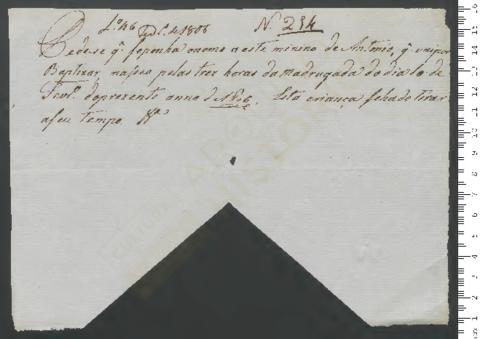 Lº 46 Fl. 4 1806 Nº 234
Pedese q. se ponha onome a este minino de Antonio, q. vai por
Baptizar, nasceo pelas tres horas da madrugada do dia 10 de
Fevrº. do prezente anno de 1806. Esta criança se hade tirar
a seu tempo